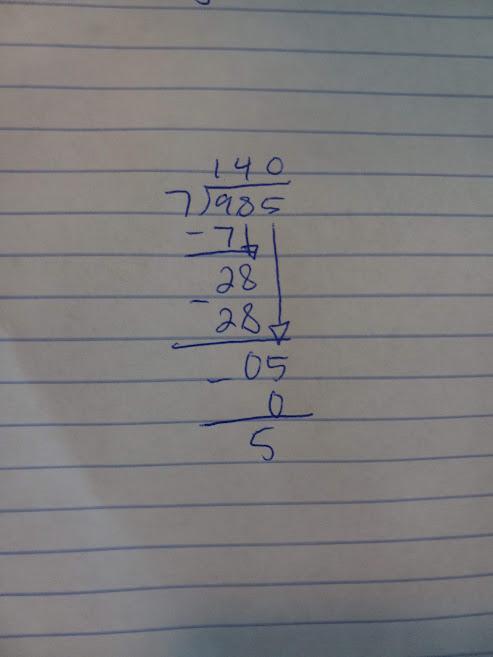 140
7)985
-7
28
-28
05
-0
5